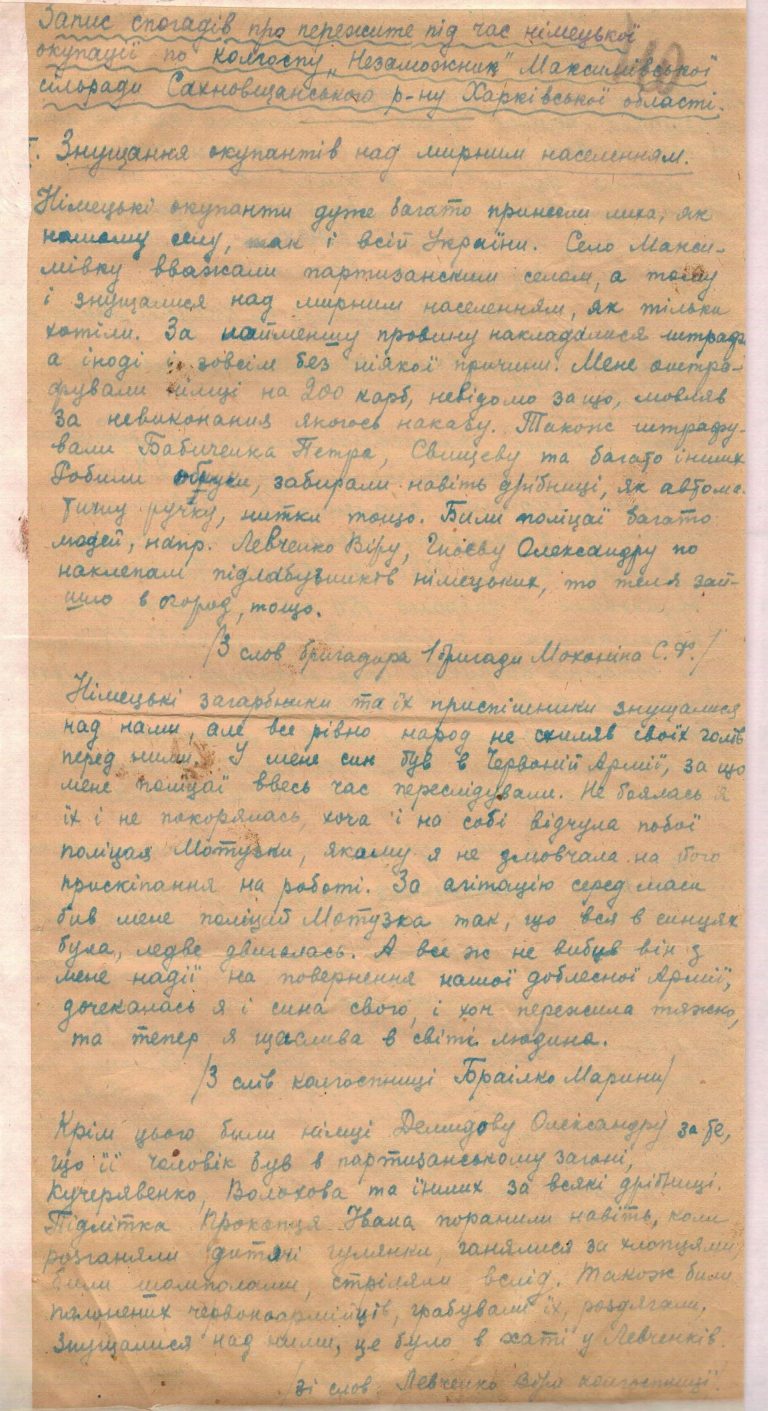 Запис спогадів про пережите під час німецької
окупації по колгоспу „Незаможник" Максимівської
сільради Сахновщанського р-ну Харківської області.
I. Знущання окупантів над мирним населенням.
Німецькі окупанти дуже багато принесли лиха, як
нашому селу, так і всій Україні. Село Макси-
мівку вважали партизанским селом, а тому
і знущалися над мирним населенням, як тільки
хотіли. За найменшу провину накладалися штрафи
а іноді і зовсім без ніякої причини. Мене оштра-
фували німці на 200 карб, невідомо за що, мовляв
за невиконання якогось наказу. Також штрафу-
вали Бабиченка Петра, Свищеву та багато інших
Робили обшуки, забирали навіть дрібниці, як автома-
тичну ручку, нитки тощо. Били поліцаї багато
людей, напр. Левченко Віру, Гноєву Олександру по
наклепам підлабузників німецьких, то теля зай-
шло в огород, тощо.
/З слов бригадира 1 бригади Мохоніна С.Ф./
Німецькі загарбники та їх приспішники знущалися
над нами, але все рівно народ не схиляв своїх голів
перед ними. У мене син був в Червоній Армії, за що
мене поліцаї ввесь час переслідували. Не боялась я
їх і не покорялась, хоча і на собі відчула побої
поліцая Мотузки, якому я не змовчала на його
прискіпання на роботі. За агітацію серед маси
бив мене поліцай Мотузка так, що вся в синцях
була, ледве двигалась. А все ж не вибив він з
мене надії на повернення нашої доблесної Армії,
дочекалась я і сина свого, і хоч пережила тяжко,
та тепер я щаслива в світі людина.
/З слів колгоспниці Браілко Марини/
Крім цього били німці Демидову Олександру за те,
що її чоловік був в партизанському загоні,
Кучерявенко, Волохова та інших за всякі дрібниці.
Підлітка Прокопця Івана поранили навіть, коли
розганяли дитячі гулянки, ганялися за хлопцями
били шомполами, стріляли вслід. Також били
полонених червоноармійців, грабували їх, роздягали,
знущалися над ними, це було в хаті у Левченків.
/зі слов Левченко Віри колгоспниці/